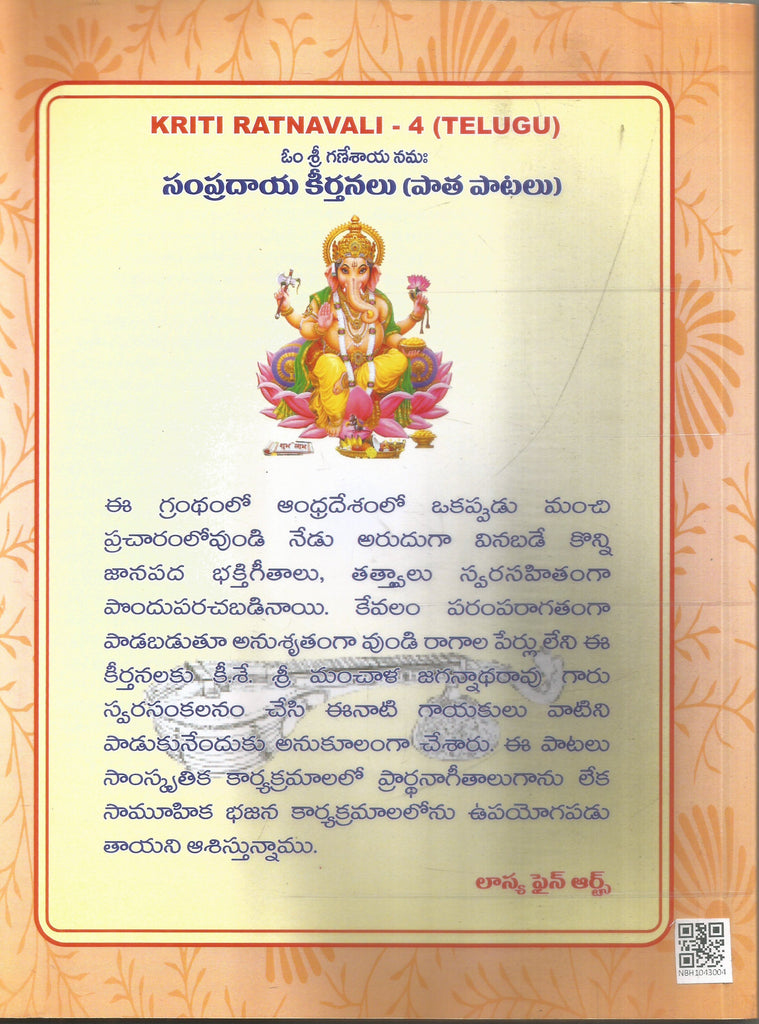 KRITI RATNAVALI - 4 (TELUGU)
ఓం శ్రీ గణేశాయ నమః
సంప్రదాయ కీర్తనలు (పాత పాటలు)
शुभ लाभ
ఈ గ్రంథంలో ఆంధ్రదేశంలో ఒకప్పుడు మంచి
ప్రచారంలోవుండి నేడు అరుదుగా వినబడే కొన్ని
జానపద భక్తిగీతాలు, తత్త్వాలు స్వరసహితంగా
పొందుపరచబడినాయి. కేవలం పరంపరాగతంగా
పాడబడుతూ అనుశృతంగా వుండి రాగాల పేర్లులేని ఈ
కీర్తనలకు కీ.శే. శ్రీ మంచాళ జగన్నాథరావు గారు
స్వరసంకలనం చేసి ఈనాటి గాయకులు వాటిని
పాడుకునేందుకు అనుకూలంగా చేశారు. ఈ పాటలు
సాంస్కృతిక కార్యక్రమాలలో ప్రార్థనాగీతాలుగాను లేక
సామూహిక భజన కార్యక్రమాలలోను ఉపయోగపడు
తాయని ఆశిస్తున్నాము.
లాస్య ఫైన్ ఆర్ట్స్
NBH1043004